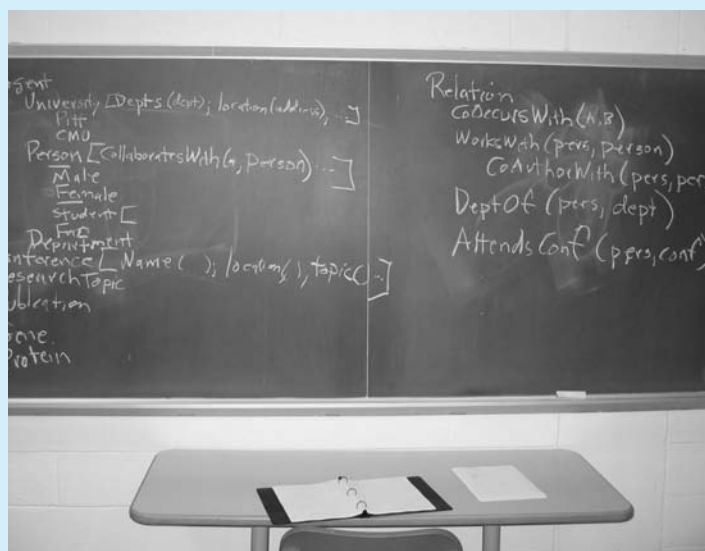 gent
University [Depts (dept); location (address), ...]
Pitt
CMU
Person [CollaboratesWith(n, person) ...]
Male
Female
Student [
Fac
Department
nference [Name( ); location( ), topic( ) ...]
esearch Topic
ublication
ene
Protein
Relation
CoOccursWith(A,B)
WorksWith (pers, person)
CoAuthorWith (pers, per
DeptOf (pers, dept)
AttendsConf (pers, conf)